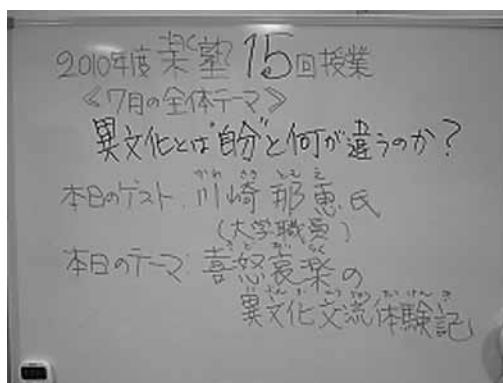 2010年度 楽塾 15回授業
≪7月の全体テーマ≫
異文化とは"自分"と何が違うのか?
かわ さき とも え
本日のゲスト:川崎那恵氏
(大学職員)
本日のテーマ:喜怒哀楽の
異文化交流体験記